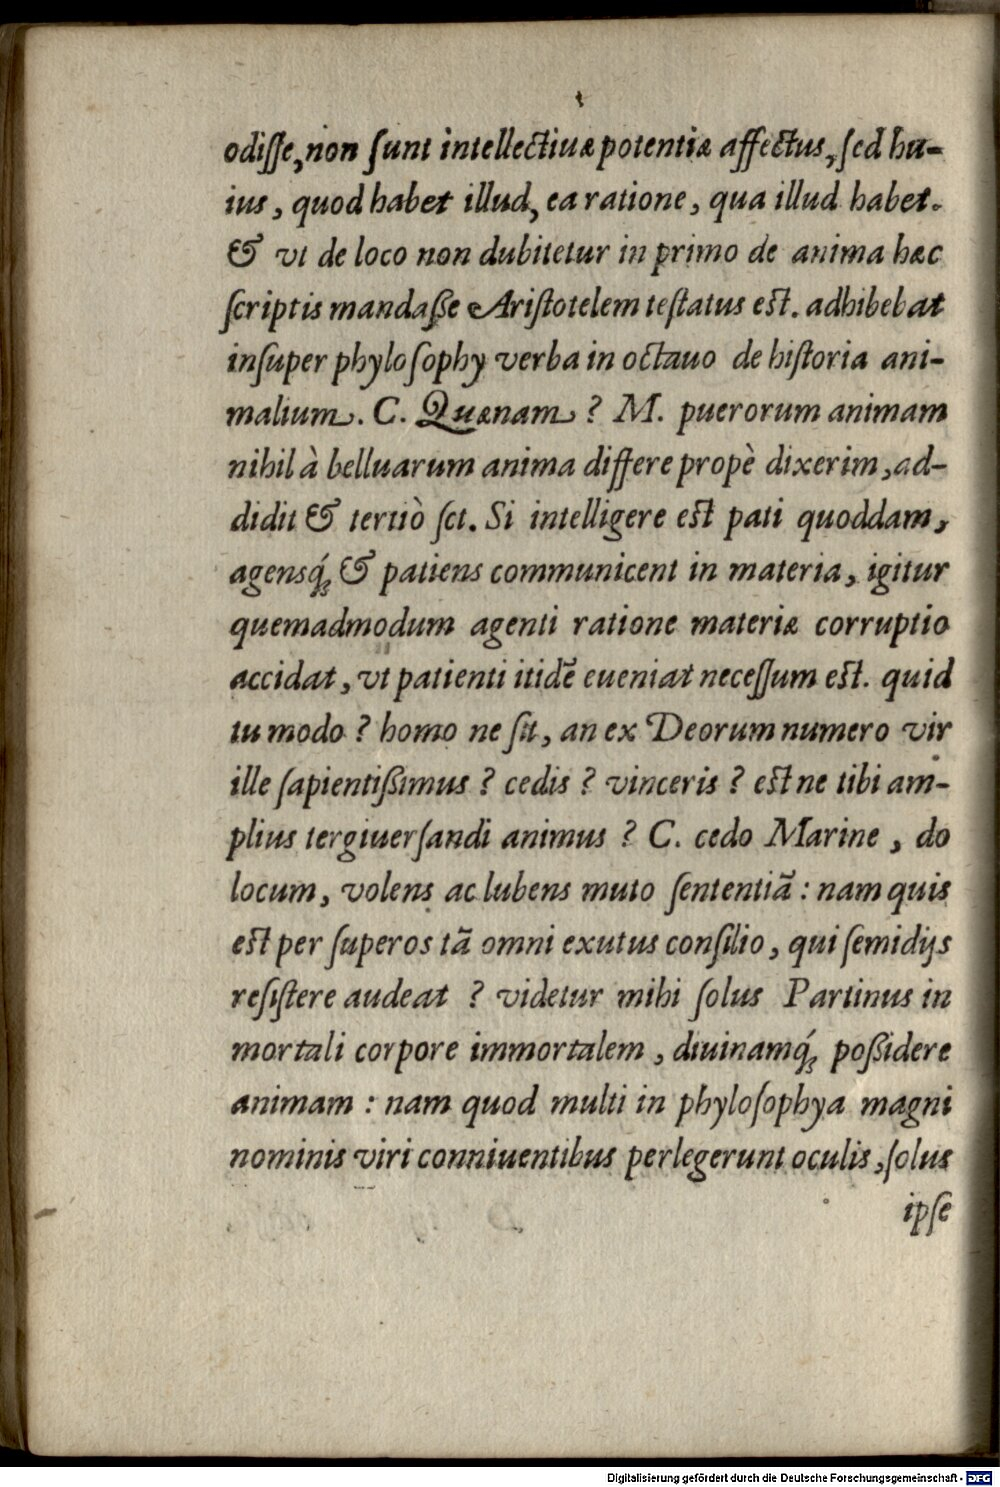 odiſſe, non ſunt intellectiuæ potentiæ affectus, ſed hu-
ius, quod habet illud, ea ratione, qua illud habet.
& vt de loco non dubitetur in primo de anima hæc
ſcriptis mandaſſe Ariſtotelem teſtatus eſt. adhibebat
inſuper phyloſophy verba in octauo de hiſtoria ani-
malium. C. Quænam? M. puerorum animam
nihil à belluarum anima differe propè dixerim, ad-
didit & tertiò ſct. Si intelligere eſt pati quoddam,
agensq́; & patiens communicent in materia, igitur
quemadmodum agenti ratione materiæ corruptio
accidat, vt patienti itidē eueniat neceſſum eſt. quid
tu modo? homo ne ſit, an ex Deorum numero vir
ille ſapientißimus? cedis? vinceris? eſt ne tibi am-
plius tergiuerſandi animus? C. cedo Marine, do
locum, volens ac lubens muto ſententiā: nam quis
eſt per ſuperos tā omni exutus conſilio, qui ſemidijs
reſiſtere audeat? videtur mihi ſolus Partinus in
mortali corpore immortalem, diuinamq́; poßidere
animam: nam quod multi in phyloſophya magni
nominis viri conniuentibus perlegerunt oculis, ſolus
ipſe
Digitalisierung gefördert durch die Deutsche Forschungsgemeinschaft - DFG